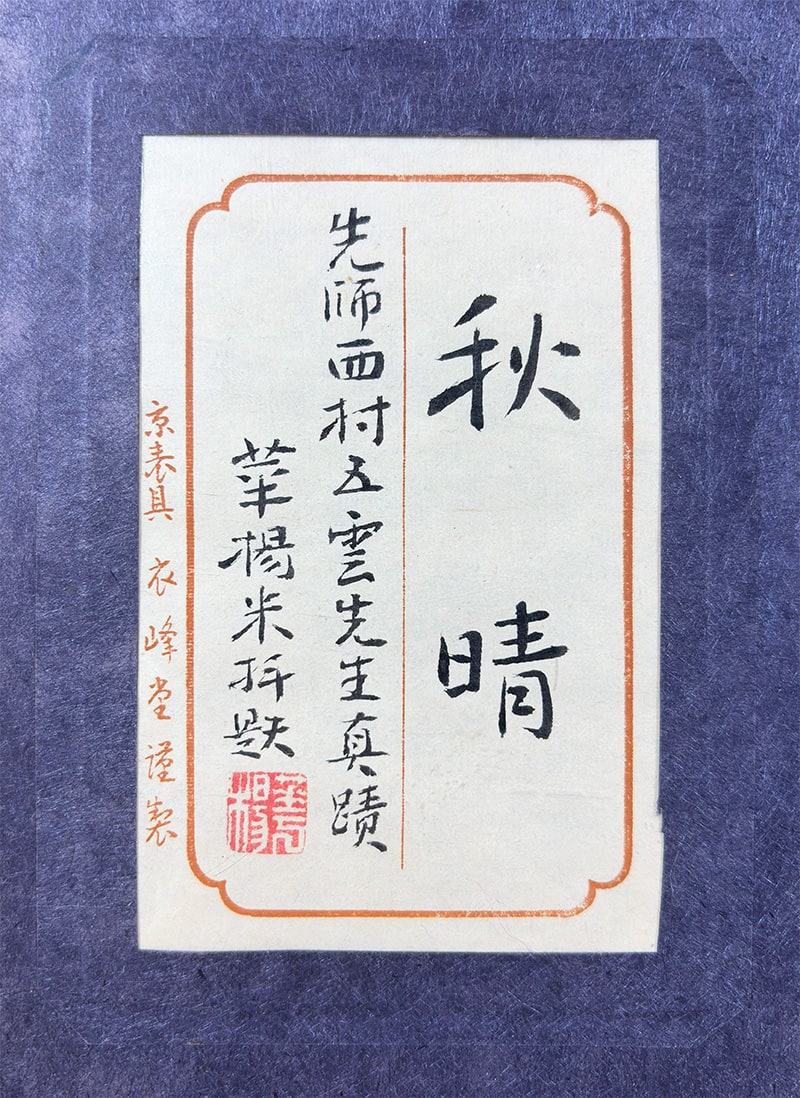 秋晴
先師西村五雲先生真蹟
華楊米拝題
京表具 衣峰堂謹製